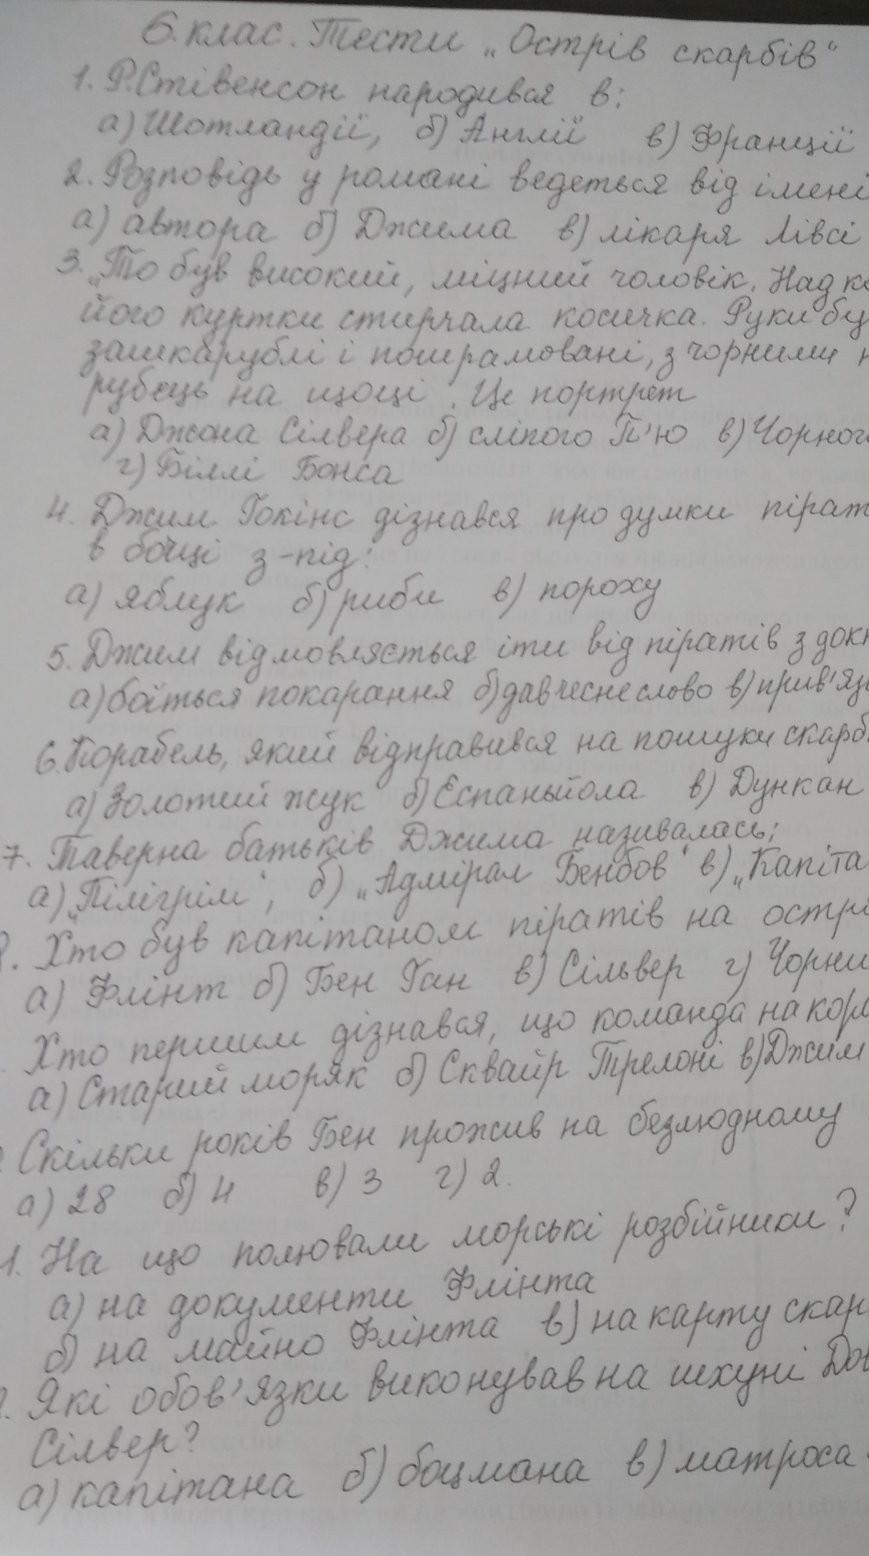 6. клас. Тести „Острів скарбів“
1. Р.Стівенсон народився в:
а) Шотландії, б) Англії в) Франції
2. Розповідь у романі ведеться від імені
а) автора б) Джима в) лікаря Лівсі
3. „То був високий, міцний чоловік. Над ко
його куртки стирчала косичка. Руки бу
зашкарублі і пошрамовані, з чорними н
рубець на щоці. Це портрет
а) Джона Сілвера б) сліпого П'ю в) Чорног
г) Біллі Бонса
4. Джим Гокінс дізнався про думки пірат
в бочці з-під:
а) яблук б) риби в) пороху
5. Джим відмовляється іти від піратів з док
а) боїться покарання б) дав чесне слово в) прив'яз
6. Корабель, який відправився на пошуки скарб
а) Золотий жук б) Еспаньйола в) Дункан
7. Таверна батьків Джима називалась;
а) „Пілігрім“, б) „Адмірал Бенбов“ в) „Капіта
8. Хто був капітаном піратів на остр
а) Флінт б) Бен Ган в) Сільвер г) Чорни
Хто першим дізнався, що команда на кор
а) Старий моряк б) Сквайр Трелоні в) Джим
Скільки років Бен прожив на безлюдному
а) 28 б) 4 в) 3 г) 2.
1. На що полювали морські розбійники?
а) на документи Флінта
б) на майно Флінта в) на карту скар
2. Які обов'язки виконував на шхуні Дов
Сілвер?
а) капітана б) боцмана в) матроса